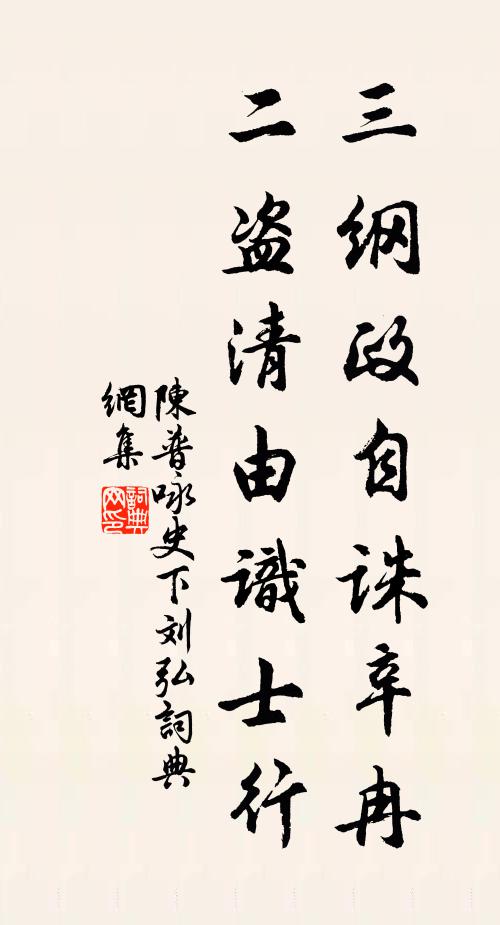 三纲政自誅辛冉
二盗清由識士行
陳普咏史下刘弘詞典
網集
詞典网印